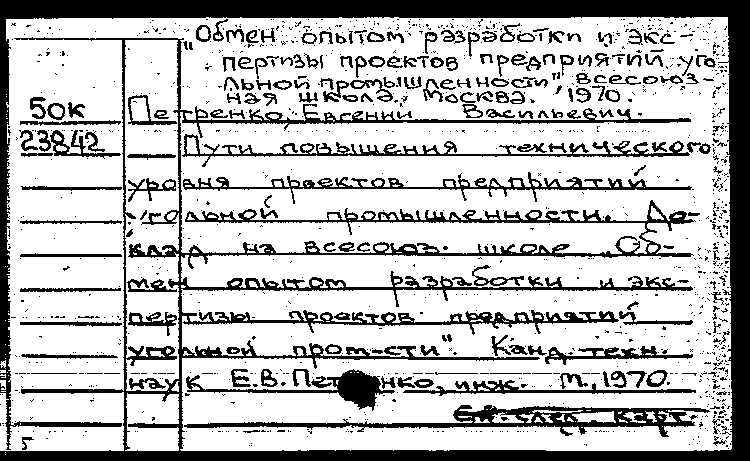 "Обмен опытом разработки и экс-
пертизы проектов предприятий уго
льной промышленности" всесоюз-
ная школа, Москва, 1970.
50к Петренко, Евгений Васильевич.
23842 Пути повышения технического
уровня проектов предприятий
угольной промышленности. До-
клад на всесоюз. школе „Об-
мен опытом разработки и экс-
пертизы проектов предприятий
угольной пром-сти". Канд. техн.
наук Е.В. Петренко, инж. М., 1970.
См. след. карт.
5